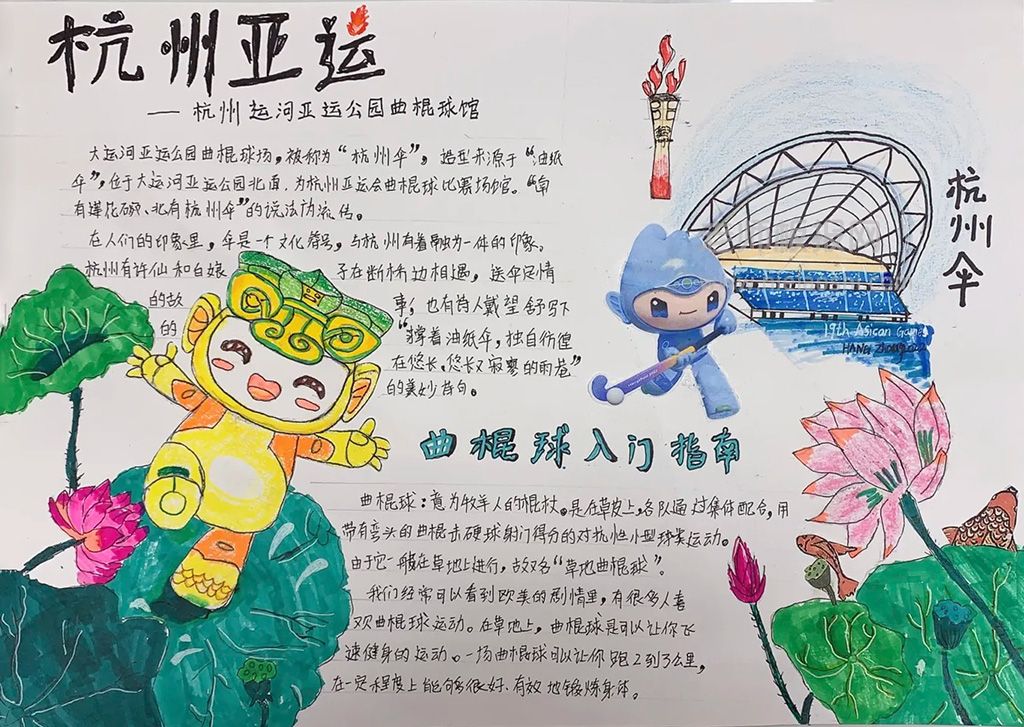 杭州亚运
——杭州运河亚运公园曲棍球馆
大运河亚运公园曲棍球场，被称为“杭州伞”，造型来源于“油纸
伞”，位于大运河亚运公园北面，为杭州亚运会曲棍球比赛场馆。“南
有莲花碗、北有杭州伞”的说法流传。
在人们的印象里，伞是一个文化符号，与杭州有着融为一体的印象。
杭州有许仙和白娘子在断桥边相遇，送伞定情
的故事；也有诗人戴望舒写下
的“撑着油纸伞，独自彷徨
在悠长、悠长又寂寥的雨巷”
的美妙诗句。
杭州伞
19th Asican Games
HANG Zhou
曲棍球入门指南
曲棍球：意为牧羊人的棍杖。是在草地上，各队通过集体配合，用
带有弯头的曲棍击硬球射门得分的对抗性小型球类运动。
由于它一般在草地上进行，故又名“草地曲棍球”。
我们经常可以看到欧美的剧情里，有很多人喜
欢曲棍球运动。在草地上，曲棍球是可以让你飞
速健身的运动。一场曲棍球可以让你跑2到3公里，
在一定程度上能够很好、有效地锻炼身体。